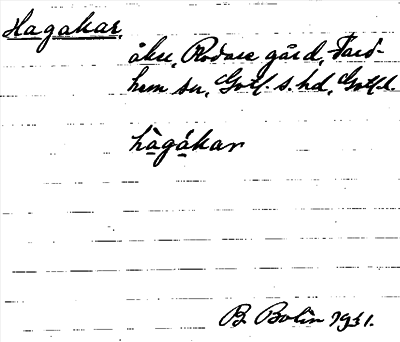 Hagakar,
åkrar, Rodare gård, Fard-
hem sn, Gotl. s. hd, Gotl. l.
hàgákar
B. Bolin 1931.